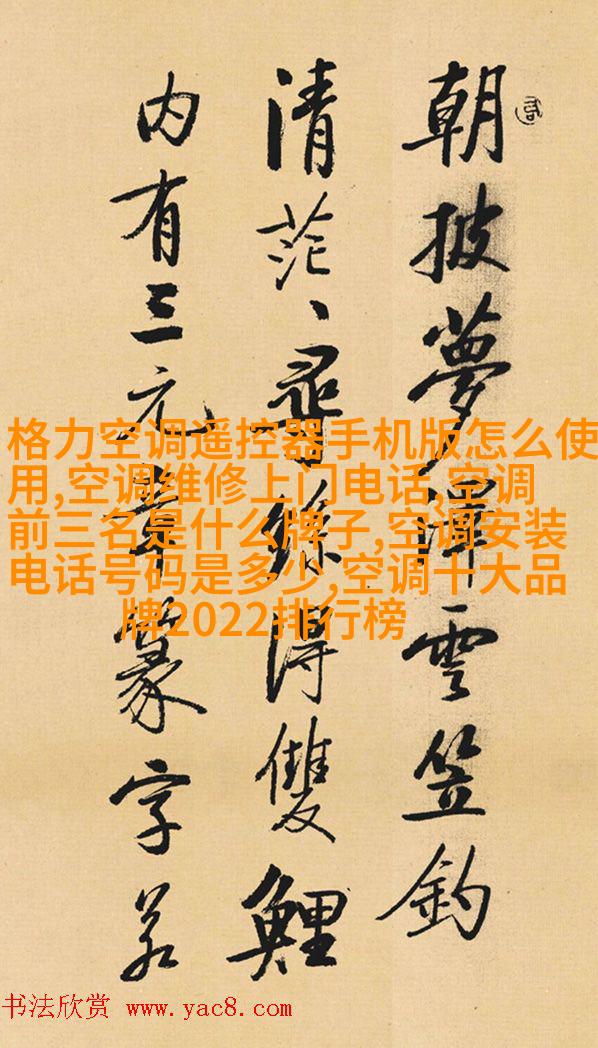 朝披夢澤雲笠釣
清茫、尋絲得雙鯉
内有三元章篆字若
格力空调遥控器手机版怎么使
用,空调维修上门电话,空调
前三名是什么牌子,空调安装
电话号码是多少,空调十大品
牌2022排行榜
书法欣赏 www.yac8.com